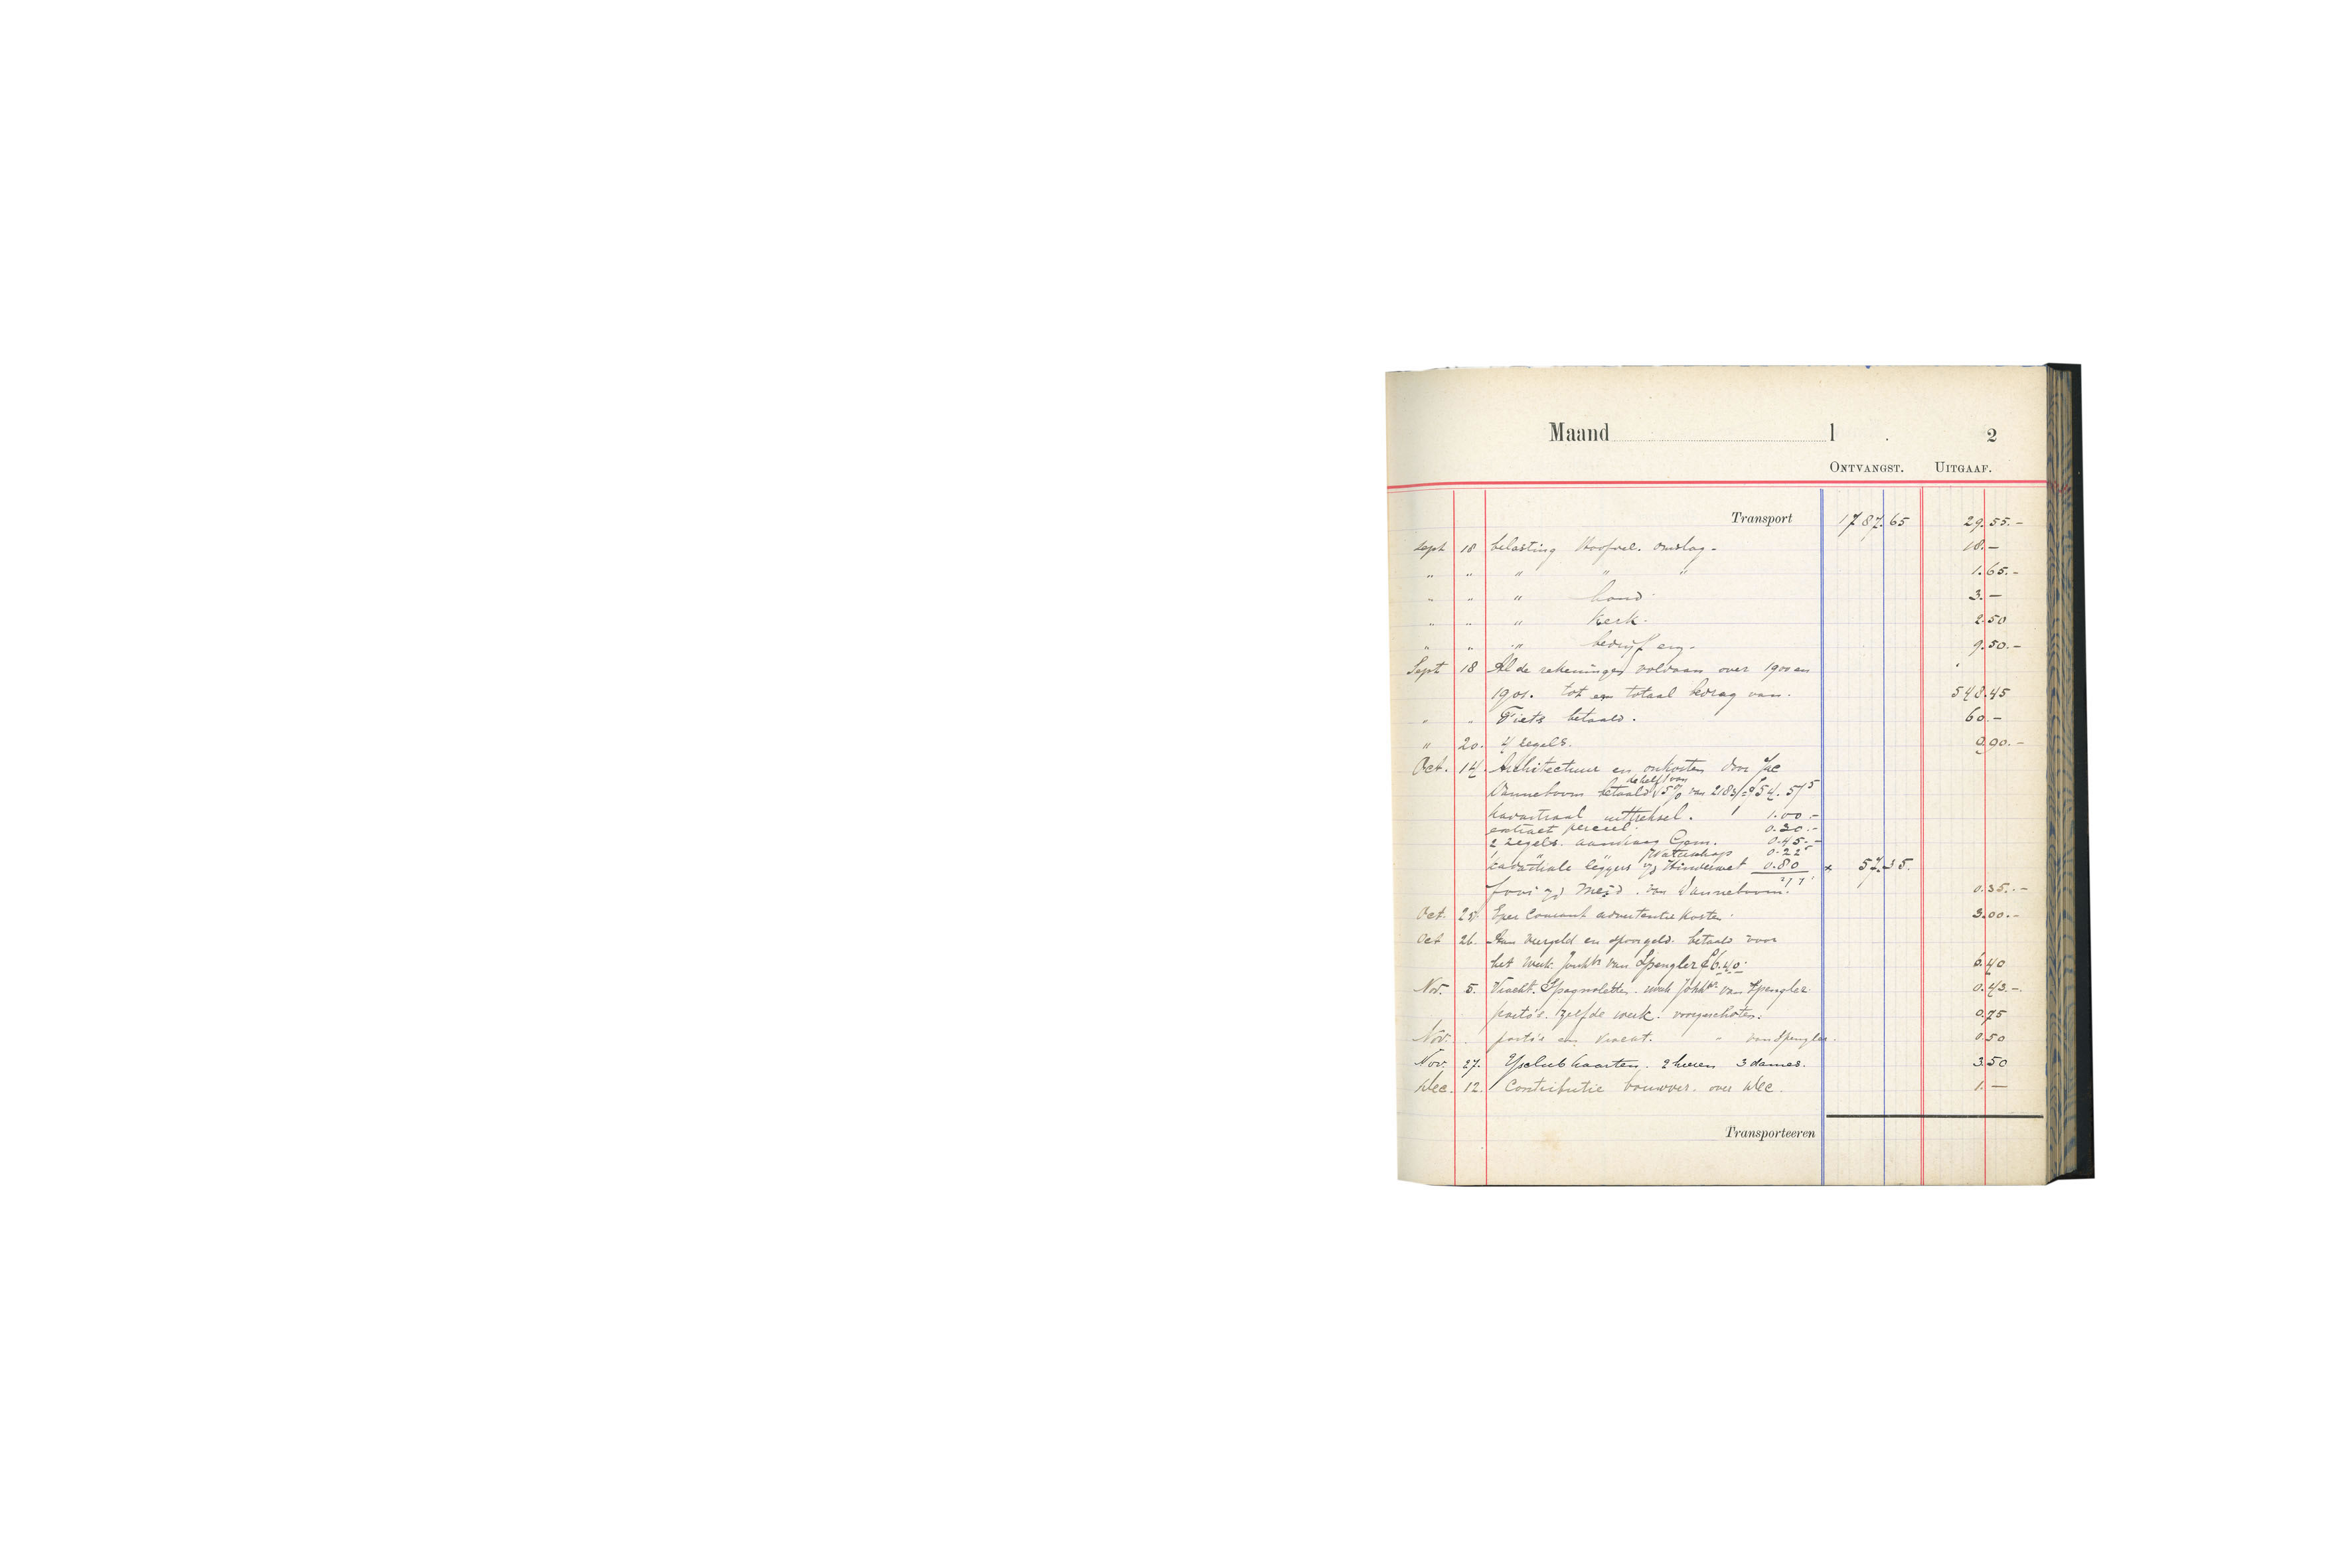 Maand 1 . 2
ONTVANGST. UITGAAF.
Transport 1787.65 29.55.-
Sept 18 belasting Hoofdel. omslag. 18.-
" " " " " 1.65.-
" " " hond. 3.-
" " " Kerk. 2.50
" " " bedrijf en. 9.50.-
Sept 18 Al de rekeningen voldaan over 1900 en
1901. tot een totaal bedrag van. 548.45
" " Fiets betaald. 60.-
" 20. 4 zegels. 0.90.-
Oct. 14. Architectuur en onkosten door
de helft van
Danneboom betaald 5% van 2183 54.57⁵
kadastraal uittreksel. 1.00.-
extract perceel. 0.30.-
2 zegels. aanvraag Gem. 0.45.-
1 " " Waterschap 0.22⁵
kadastrale leggers Hinderwet 0.80 57.35.
fooi meid van Danneboom. 0.35.-
Oct. Eper Courant advertentie Kosten. 3.00.-
Oct 26. Aan en spoorgeld. betaald voor
het werk Jonkhr van Spengler f 6.40. 6.40
Nov. 5. Vracht. Spagnoletten. werk Jonkhr. van Spengler 0.43.-.
porto's. zelfde werk. voorgeschoten. 0.75
Nov. . porto's en vracht. " van Spengler. 0.50
Nov. 27. IJsclub kaarten. 2 heeren 3 dames. 3.50
Dec. 12. Contributie bouwver. over Dec. 1.-
Transporteeren